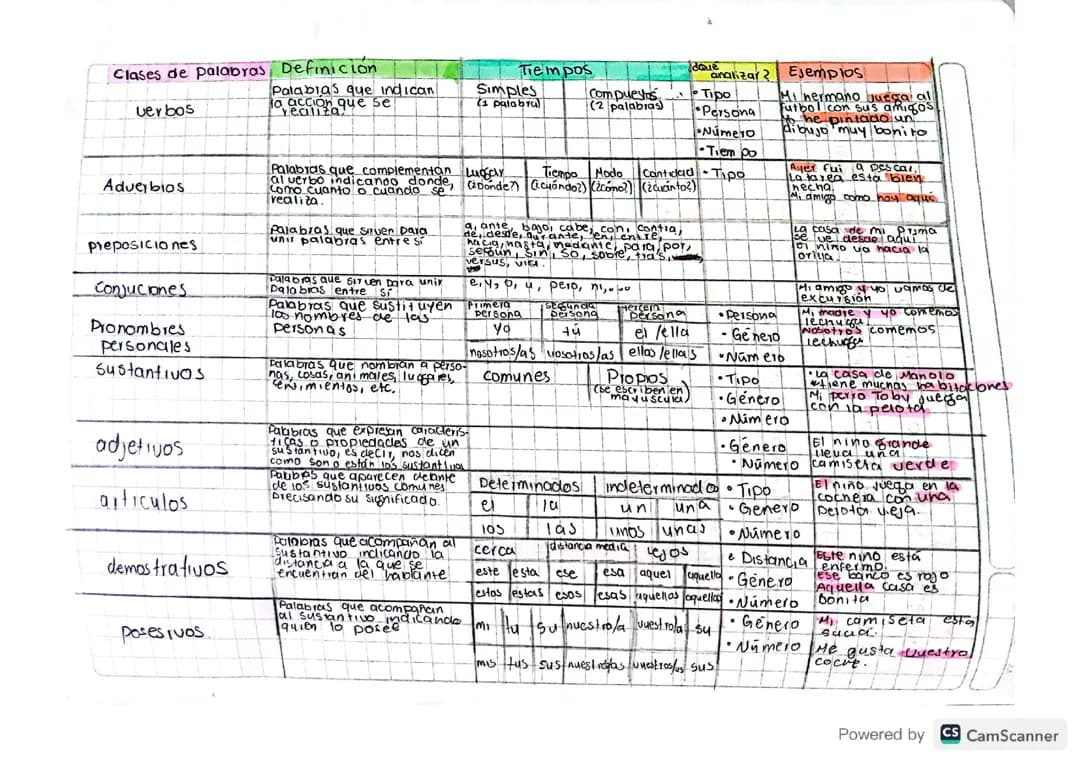 Clases de palabras Definición Tiempos ¿Qué analizar? Ejemplos
verbos
Palabras que indican
la acción que se
realiza.
Simples
(1 palabra)
Compuestos
(2 palabras)
• Tipo
• Persona
• Número
• Tiempo
Mi hermano juega al
futbol con sus amigos
Yo he pintado un
dibujo muy bonito
Adverbios
Palabras que complementan
al verbo indicando donde,
como cuanto o cuando se
realiza.
Lugar
(¿Dónde?)
Tiempo
(¿cuándo?)
Modo
(¿cómo?)
Cantidad
(¿cuánto?)
• Tipo
Ayer fui a pescar.
La tarea esta bien
hecha.
Mi amigo como hoy aqui
preposiciones
Palabras que sirven para
unir palabras entre sí
a, ante, bajo, cabe, con, contra,
de, desde, durante, en, entre,
hacia, hasta, mediante, para, por,
según, sin, so, sobre, tras,
versus, vía.
La casa de mi prima
se ve desde aqui
El niño va hacia la
orilla.
Conjuciones
Palabras que sirven para unir
palabras entre sí
e, y, o, u, pero, ni,...
Mi amigo y yo vamos de
excursión
Pronombres
personales
Palabras que sustituyen
los nombres de las
personas
Primera
persona
segunda
persona
tercera
persona
yo tú el/ella
nosotros/as vosotros/as ellos/ellas
• Persona
- Género
• Número
Mi madre y yo comemos
lechuga
Nosotros comemos
lechuga
sustantivos
Palabras que nombran a perso-
nas, cosas, animales, lugares,
sentimientos, etc.
comunes
Propios
(se escriben en
mayúscula)
• Tipo
• Género
• Número
• La casa de Manolo
tiene muchas habitaciones
Mi perro Toby juega
con la pelota
adjetivos
Palabras que expresan caracterís-
ticas o propiedades de un
sustantivo, es decir, nos dicen
como son o están los sustantivos
• Género
• Número
El niño grande
lleva una
camiseta verde
articulos
Palabras que aparecen delante
de los sustantivos comunes
precisando su significado.
Determinados indeterminados
el la un una
los las unos unas
• Tipo
• Género
• Número
El niño juega en la
cochera con una
pelota vieja.
demostrativos
Palabras que acompañan al
sustantivo indicando la
distancia a la que se
encuentran del hablante
cerca distancia media lejos
este esta ese esa aquel aquella
estos estas esos esas aquellos aquellas
• Distancia
• Género
• Número
Este niño está
enfermo.
Ese banco es rojo
Aquella casa es
bonita
Posesivos
Palabras que acompañan
al sustantivo indicando
quien lo posee
mi tu su nuestro/a vuestro/a su
mis tus sus nuestros/as vuestros/as sus
• Género
• Número
Mi camiseta esta
sucia.
Me gusta vuestro
coche.
Powered by CS CamScanner